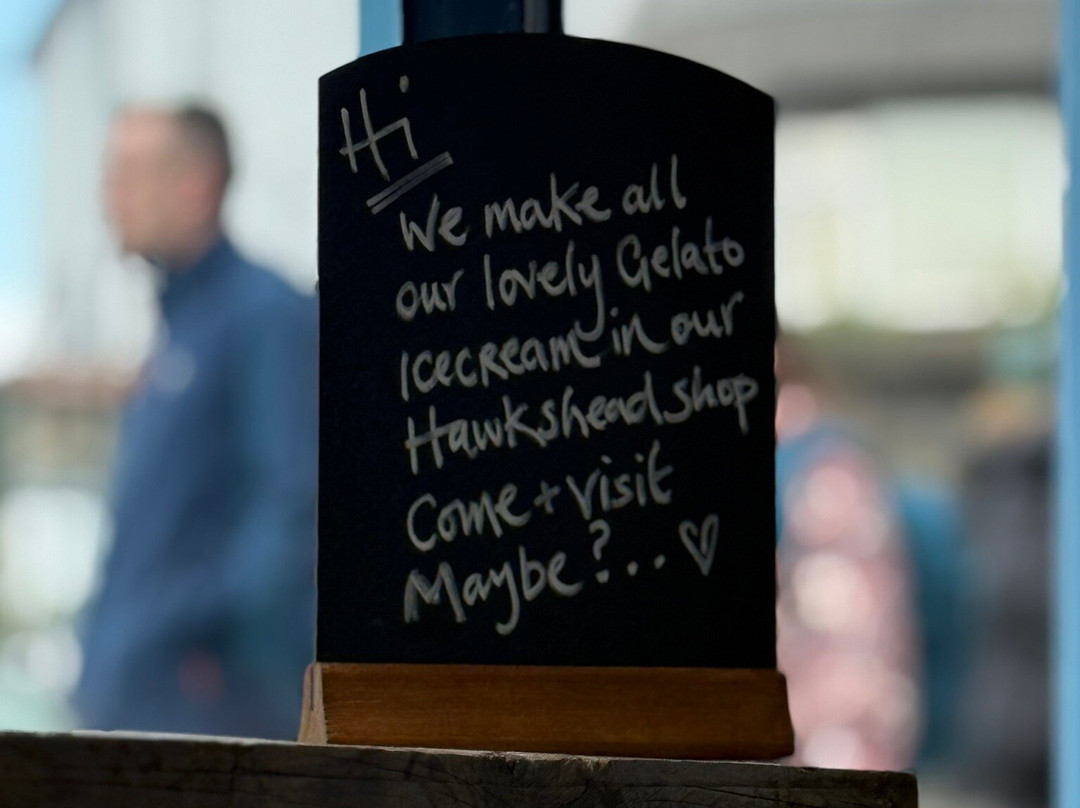 Hi
We make all
our lovely Gelato
Icecream in our
Hawkshead shop
Come + visit
Maybe?... ♡